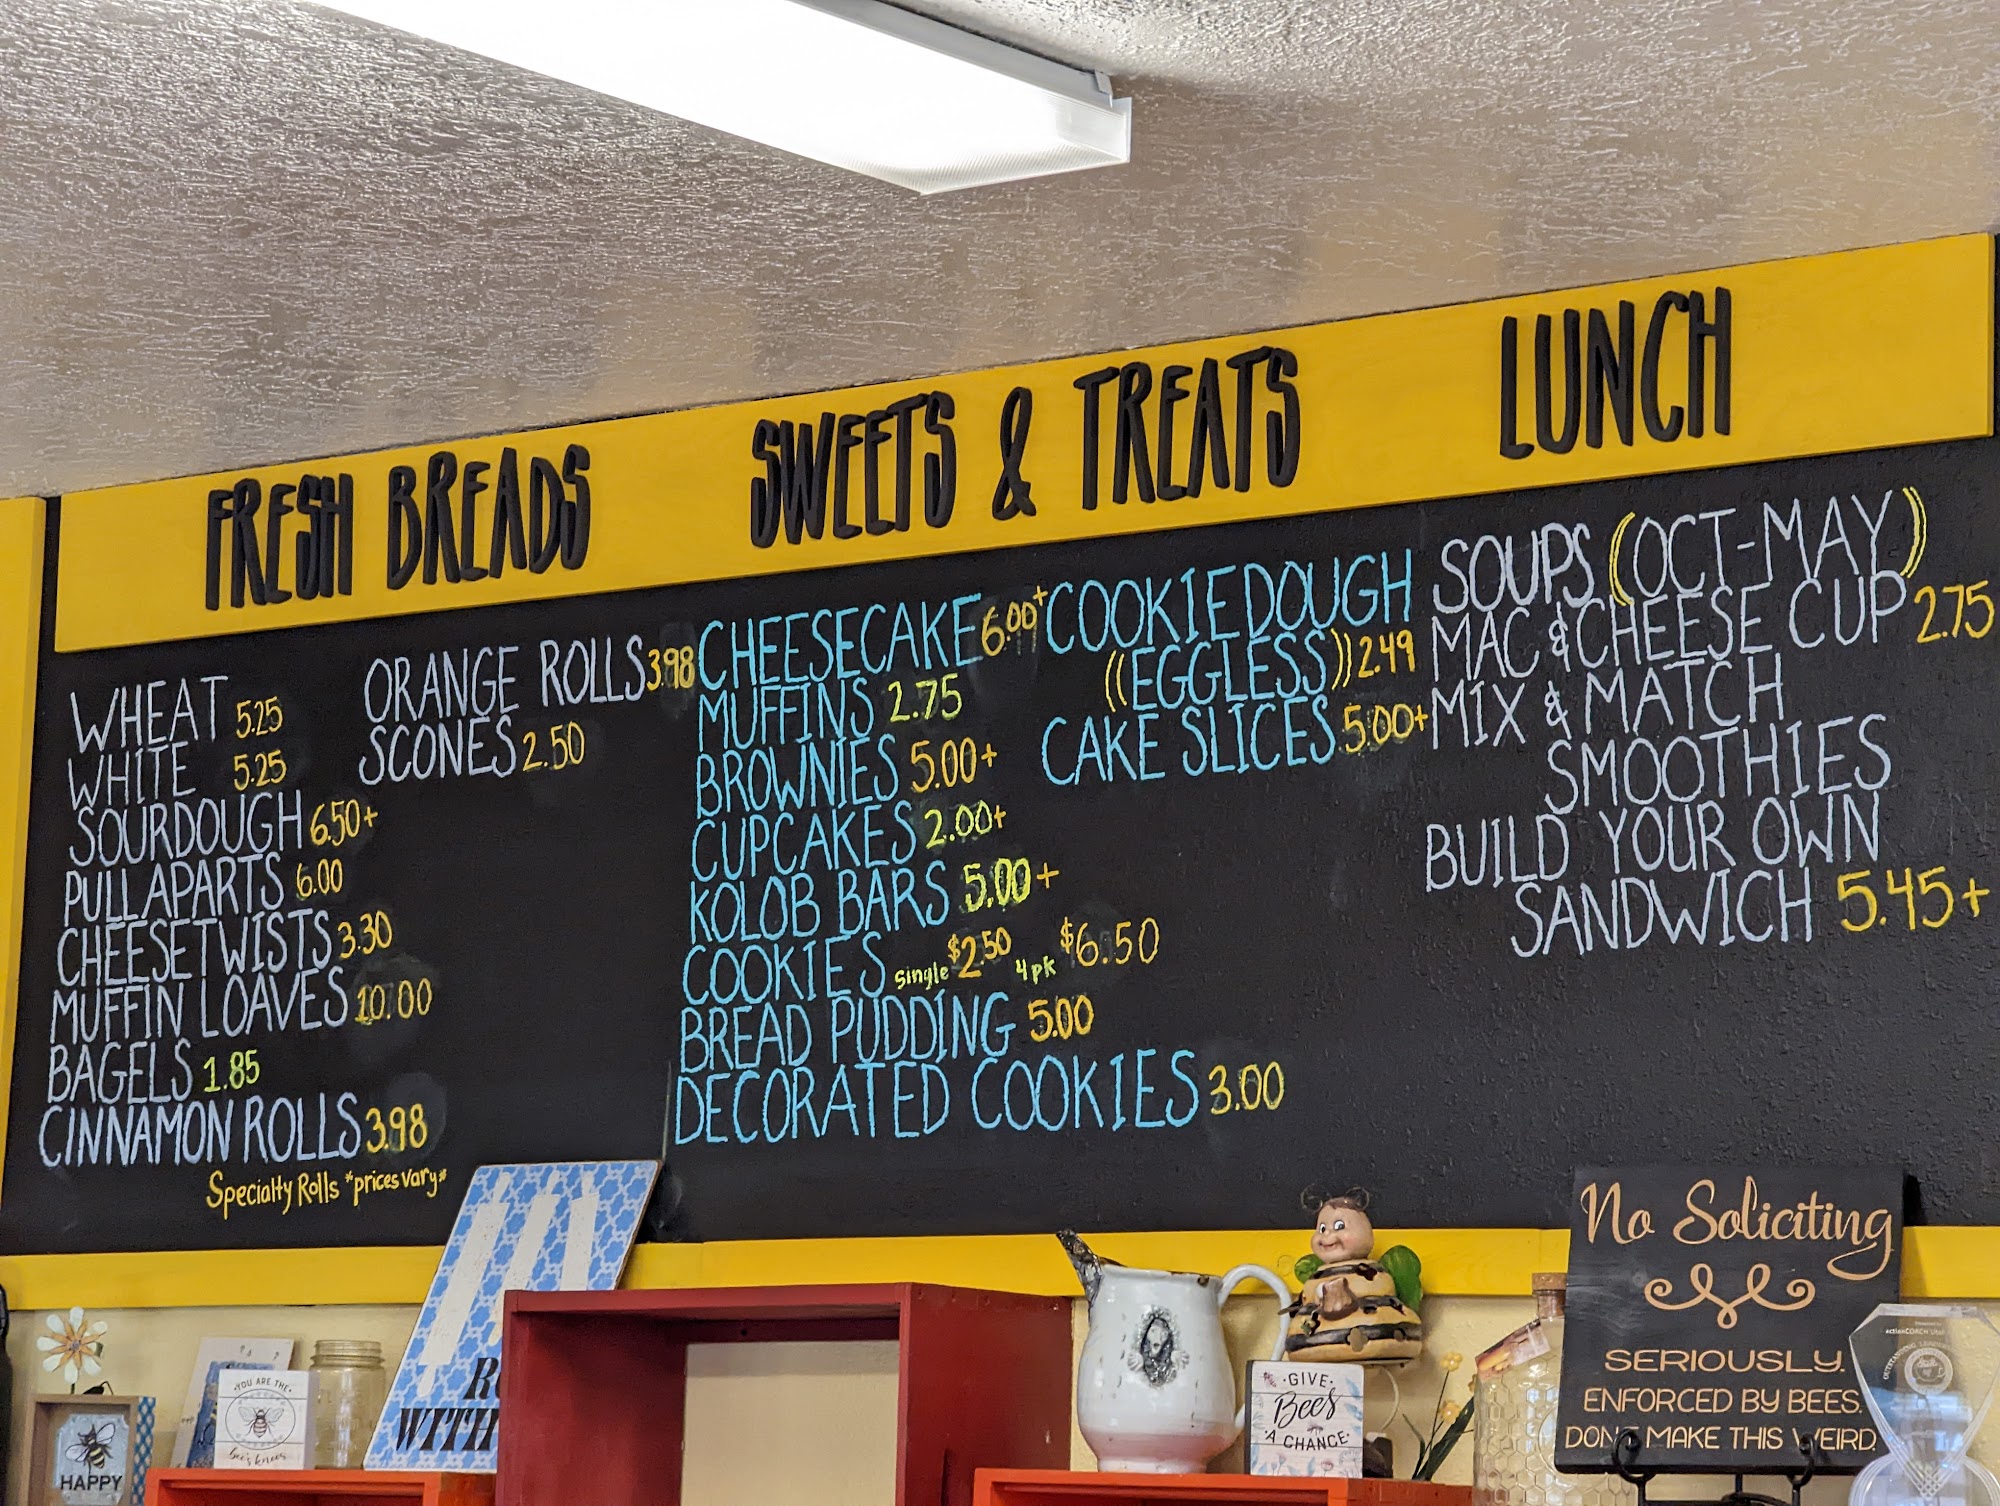 FRESH BREADS
WHEAT 5.25
WHITE 5.25
SOURDOUGH 6.50+
PULLAPARTS 6.00
CHEESETWISTS 3.30
MUFFIN LOAVES 10.00
BAGELS 1.85
CINNAMON ROLLS 3.98
Specialty Rolls *prices vary*
ORANGE ROLLS 3.98
SCONES 2.50
SWEETS & TREATS
CHEESECAKE 6.00+
MUFFINS 2.75
BROWNIES 5.00+
CUPCAKES 2.00+
KOLOB BARS 5.00+
COOKIES single $2.50 4pk $6.50
BREAD PUDDING 5.00
DECORATED COOKIES 3.00
COOKIEDOUGH
((EGGLESS)) 2.49
CAKE SLICES 5.00+
LUNCH
SOUPS (OCT-MAY)
MAC & CHEESE CUP 2.75
MIX & MATCH
SMOOTHIES
BUILD YOUR OWN
SANDWICH 5.45+
HAPPY
YOU ARE THE
bee's knees
WITH
GIVE
Bees
A CHANCE
No Soliciting
SERIOUSLY.
ENFORCED BY BEES.
DON'T MAKE THIS WEIRD.
actionCOACH Utah